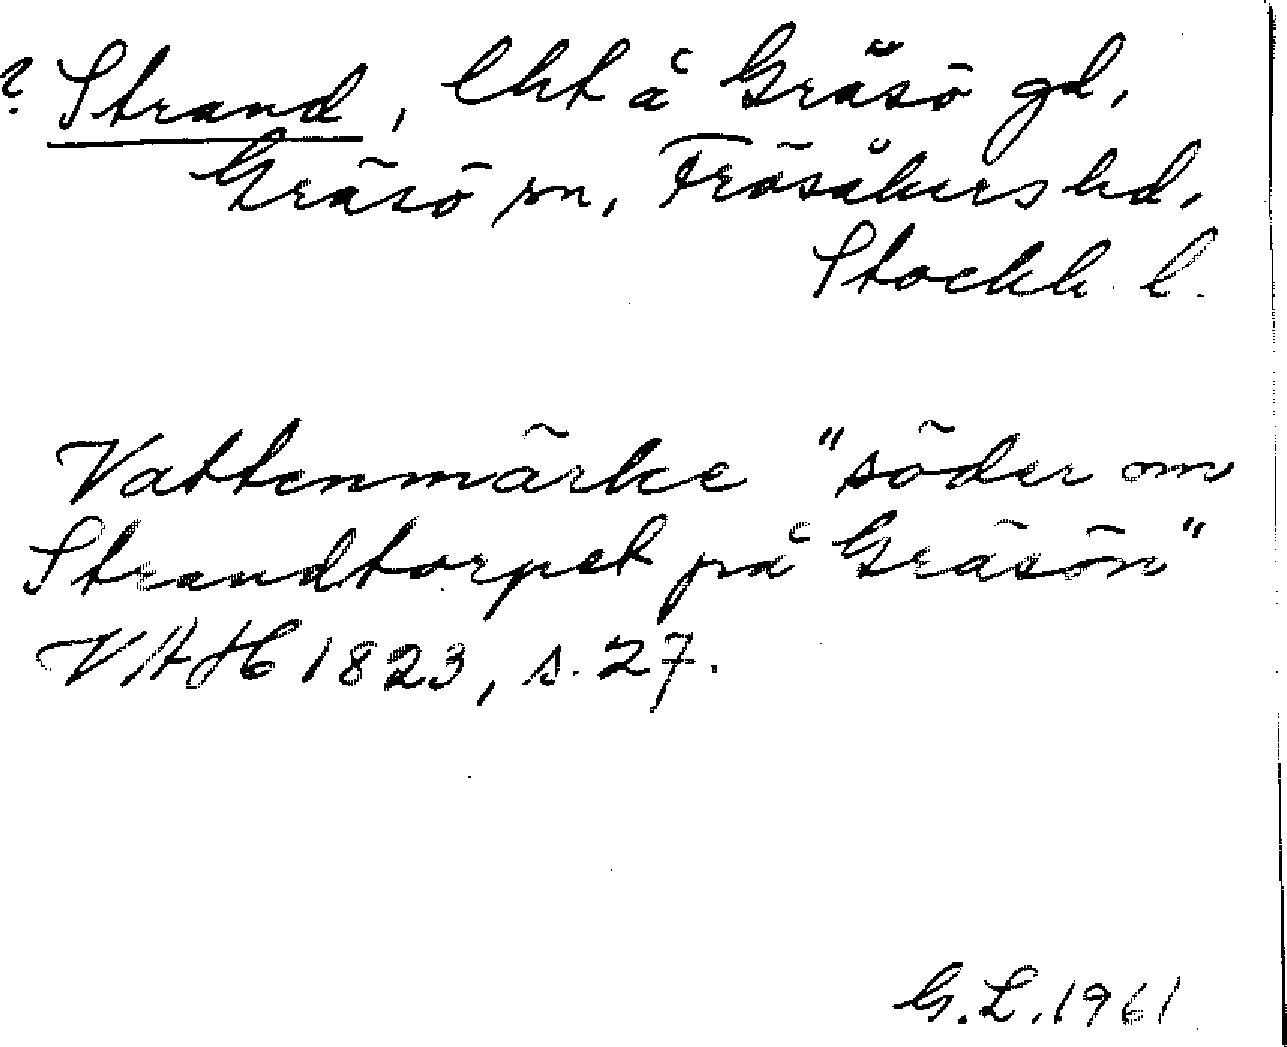 ? Strand, lht å Gräsö gd,
Gräsö sn, Frösåkers hd,
Stockh. l.
Vattenmärke "söder om
Strandtorpet på Gräsön"
VAH 1823, s. 27.
G. L. 1961